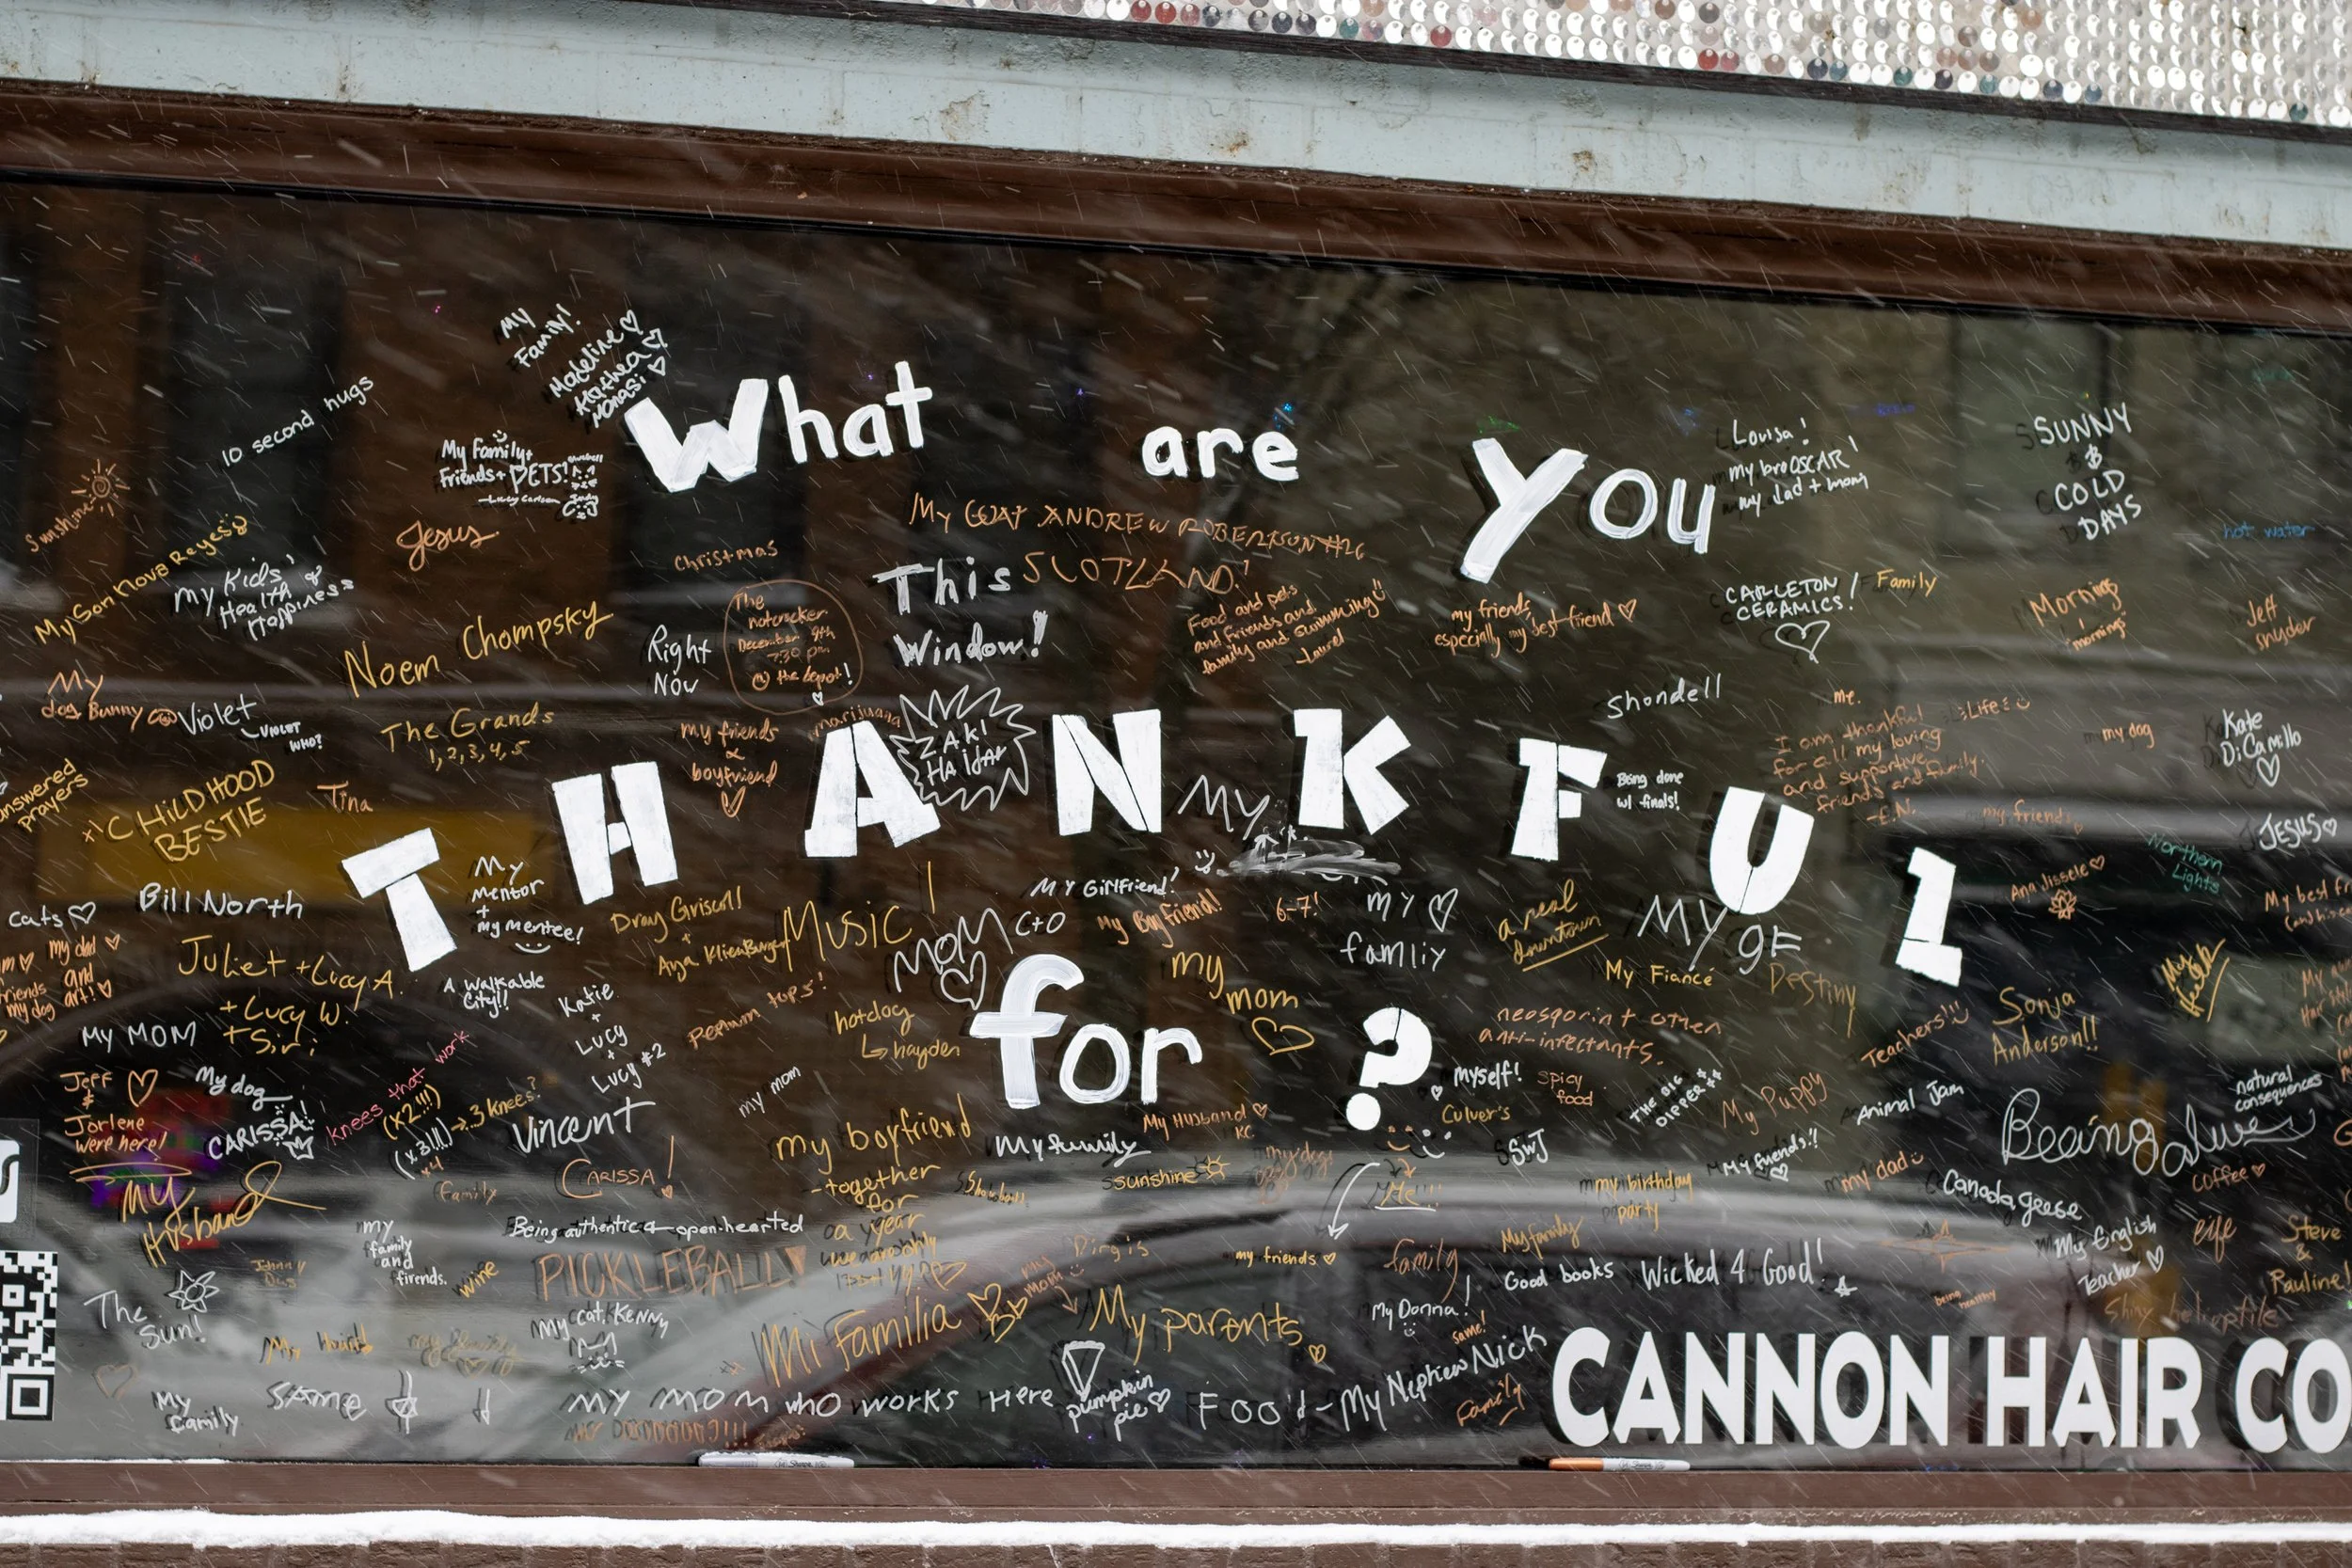 What are you
THANKFUL
for?
My
Family!
Madeline
10 second hugs
My family+
Friends+PETS!
-Lucy Carlson
Louisa!
my bro OSCAR!
my dad + mom
SUNNY
&
COLD
DAYS
sunshine
Jesus
MY GOAT ANDREW ROBERTSON #26
SCOTLAND!
hot water
My Son Nova Reyes
My Kids'
Health &
Happiness
Christmas
This
Window!
Noem Chompsky
Right
Now
The
nutcracker
December 9th
7:30 pm
@ the depot!
Food and pets
and friends and
family and swimming
-Laurel
my friends,
especially my best friend
CARLETON
CERAMICS!
Family
Mornings
mornings
Jeff
snyder
My
dog Bunny
Violet
VIOLET
WHO?
The Grands
1, 2, 3, 4, 5
my friends
&
boyfriend
marijuana
ZAKI
HAIDAR
Shondell
me.
Life
I am thankful
for all my loving
and supportive
friends and family.
my dog
Kate
DiCamillo
answered
prayers
CHILDHOOD
BESTIE
Tina
MY
Being done
w/ finals!
my friends
JESUS
Northern
Lights
Bill North
My
mentor
+
my mentee!
MY Girlfriend!
My Boyfriend!
6-7!
MY
famliy
a real
downtown
MY gF
My Fiancé
Destiny
cats
my dad
and
art!
friends
my dog
Juliet + Lucy A.
+ Lucy W.
+ Siri
A WALKABLE
CITY!!
Music!
MOM
my
mom
hotdog
hayden
Katie
+
Lucy
+
Lucy #2
MY MOM
neosporin + other
anti-infectants.
Teachers!
Sonja
Anderson!!
Jeff
&
Jorlene
were here!
My dog
CARISSA!
knees that work
(x2!!!)
(x.3!!!)
3 knees?
x4
family
Vincent
CARISSA!
my mom
my boyfriend
-together
for
a year
my family
My Husband
sunshine
myself!
Culver's
spicy
food
THE BIG
DIPPER
My Puppy
Animal Jam
natural
consequences
Being alive
SWJ
My friends!!
my dad
my birthday
party
Canada geese
coffee
My
Husband
Being authentic + open-hearted
PICKLEBALL
my
family
and
firends.
wine
Me!!!
my friends
family
My family
Good books
Wicked 4 Good!
My English
Teacher
life
Steve
&
Pauline!
The
Sun!
My cat, Kenny
Mi familia
My parents
My Donna!
same!
being
healthy
Shiny heliophile
My
family
SAME
MY MOM who works Here
pumpkin
pie
Foo'd
My Nephew Nick
family
CANNON HAIR CO